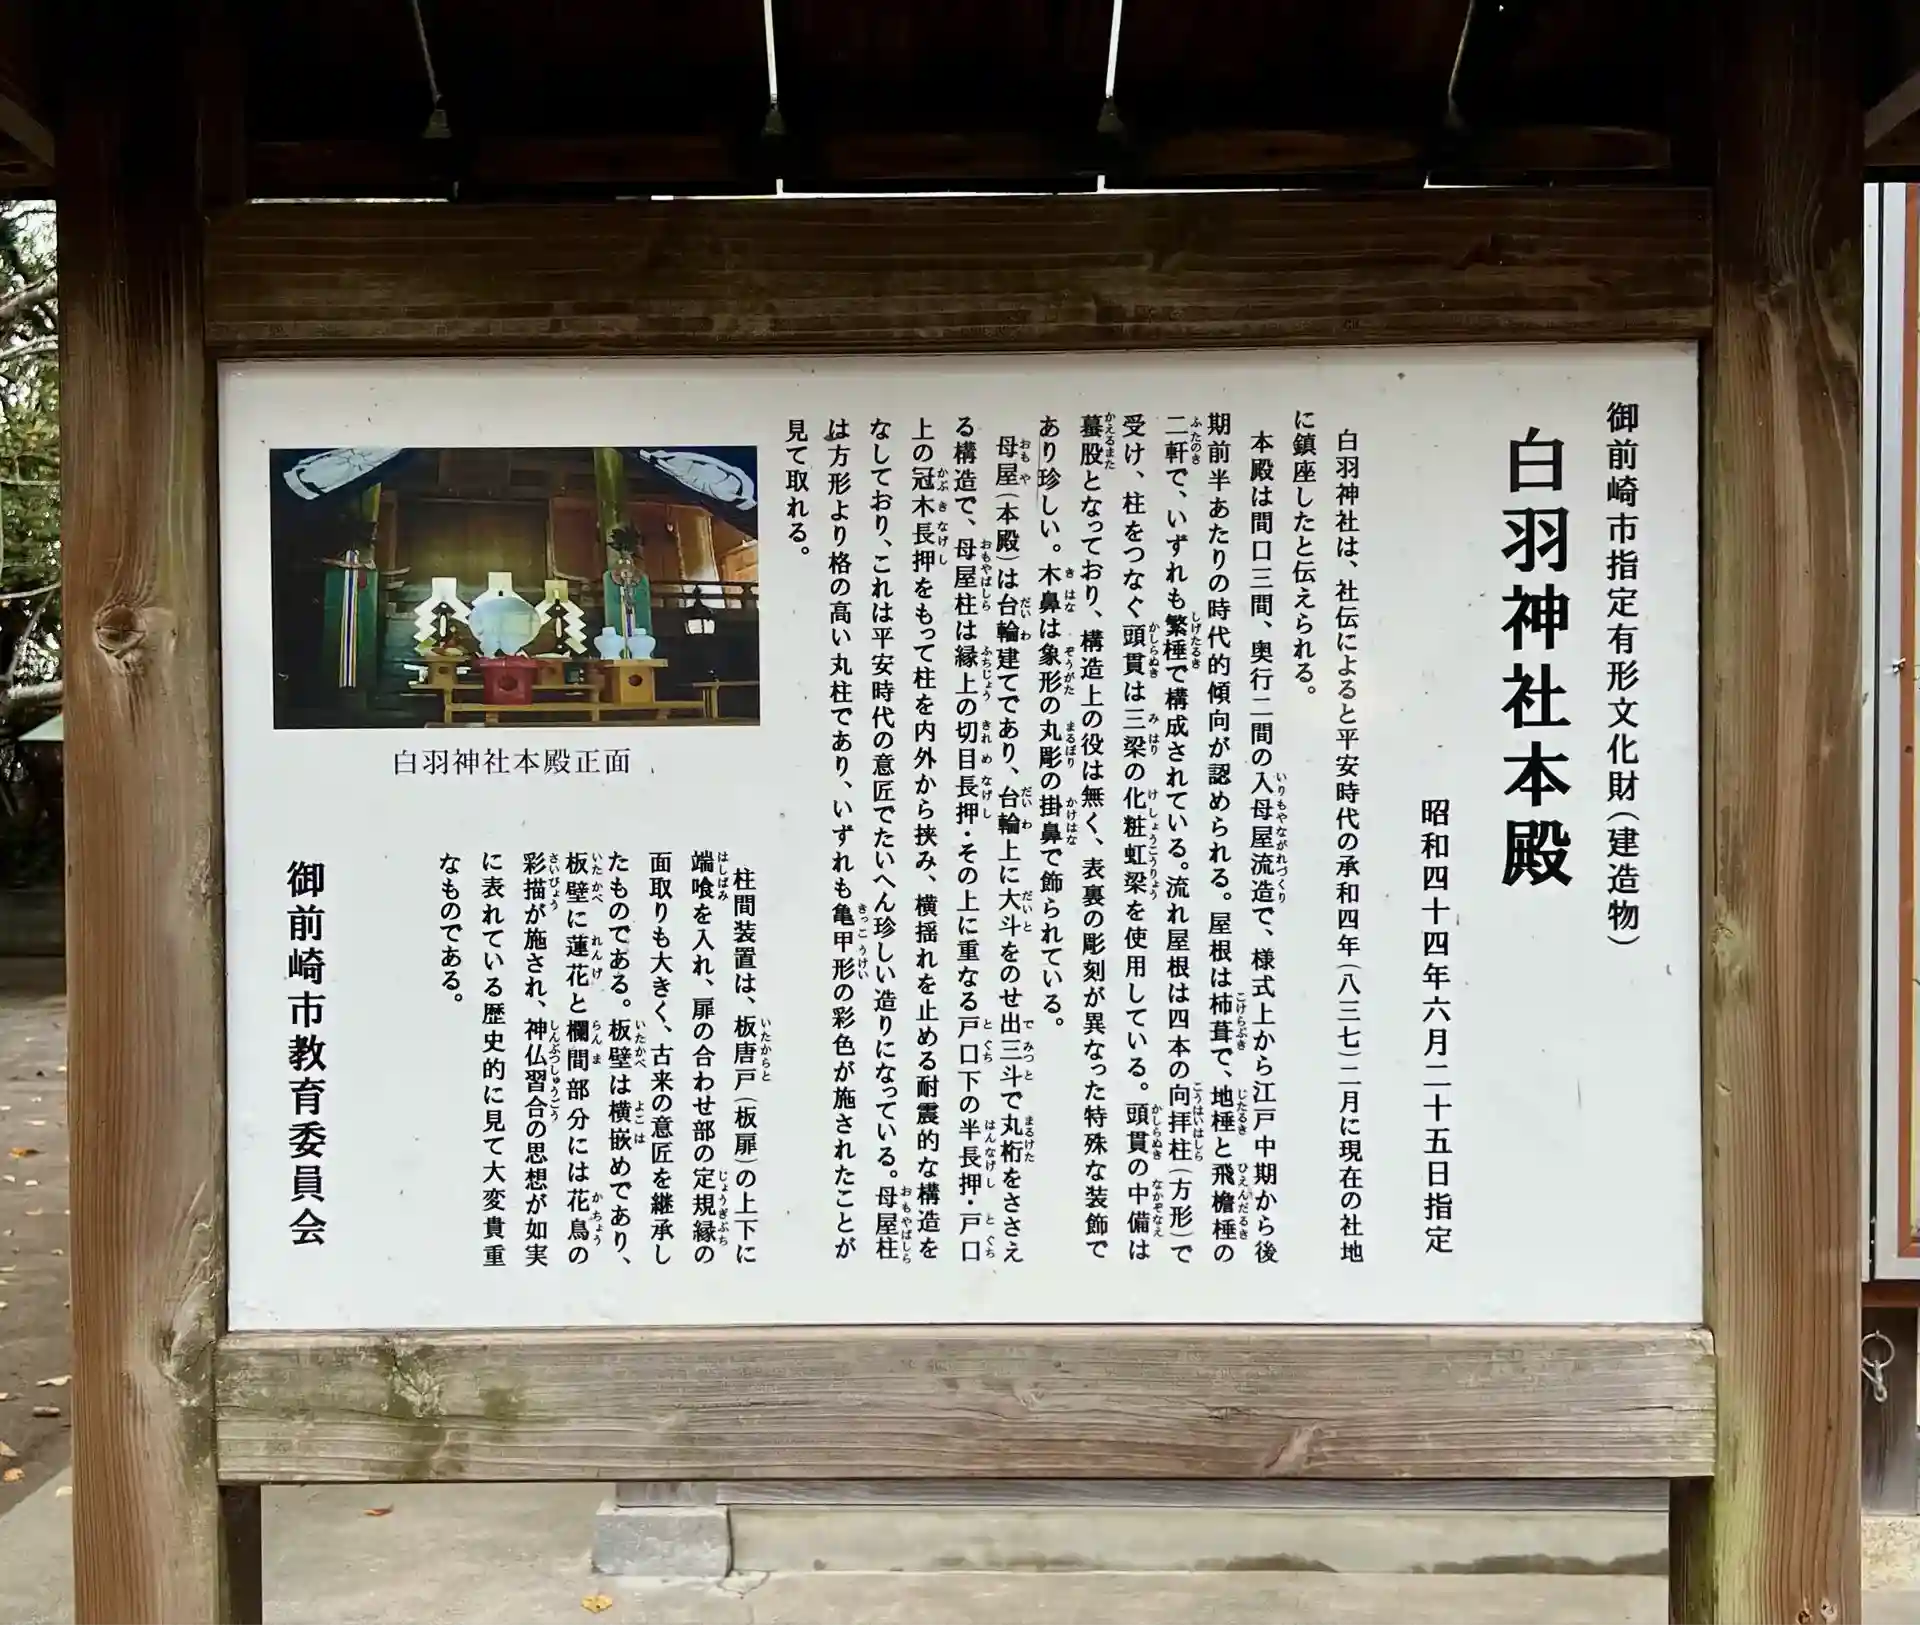 御前崎市指定有形文化財(建造物)
白羽神社本殿
昭和四十四年六月二十五日指定
白羽神社は、社伝によると平安時代の承和四年(八三七)二月に現在の社地
に鎮座したと伝えられる。
本殿は間口三間、奥行二間の入母屋流造で、様式上から江戸中期から後
期前半あたりの時代的傾向が認められる。屋根は柿葺で、地棰と飛檐棰の
二軒で、いずれも繁棰で構成されている。流れ屋根は四本の向拝柱(方形)で
受け、柱をつなぐ頭貫は三梁の化粧虹梁を使用している。頭貫の中備は
蟇股となっており、構造上の役は無く、表裏の彫刻が異なった特殊な装飾で
あり珍しい。木鼻は象形の丸彫の掛鼻で飾られている。
母屋(本殿)は台輪建てであり、台輪上に大斗をのせ出三斗で丸桁をささえ
る構造で、母屋柱は縁上の切目長押・その上に重なる戸口下の半長押・戸口
上の冠木長押をもって柱を内外から挟み、横揺れを止める耐震的な構造を
なしており、これは平安時代の意匠でたいへん珍しい造りになっている。母屋柱
は方形より格の高い丸柱であり、いずれも亀甲形の彩色が施されたことが
見て取れる。
白羽神社本殿正面
柱間装置は、板唐戸(板扉)の上下に
端喰を入れ、扉の合わせ部の定規縁の
面取りも大きく、古来の意匠を継承し
たものである。板壁は横嵌めであり、
板壁に蓮花と欄間部分には花鳥の
彩描が施され、神仏習合の思想が如実
に表れている歴史的に見て大変貴重
なものである。
御前崎市教育委員会